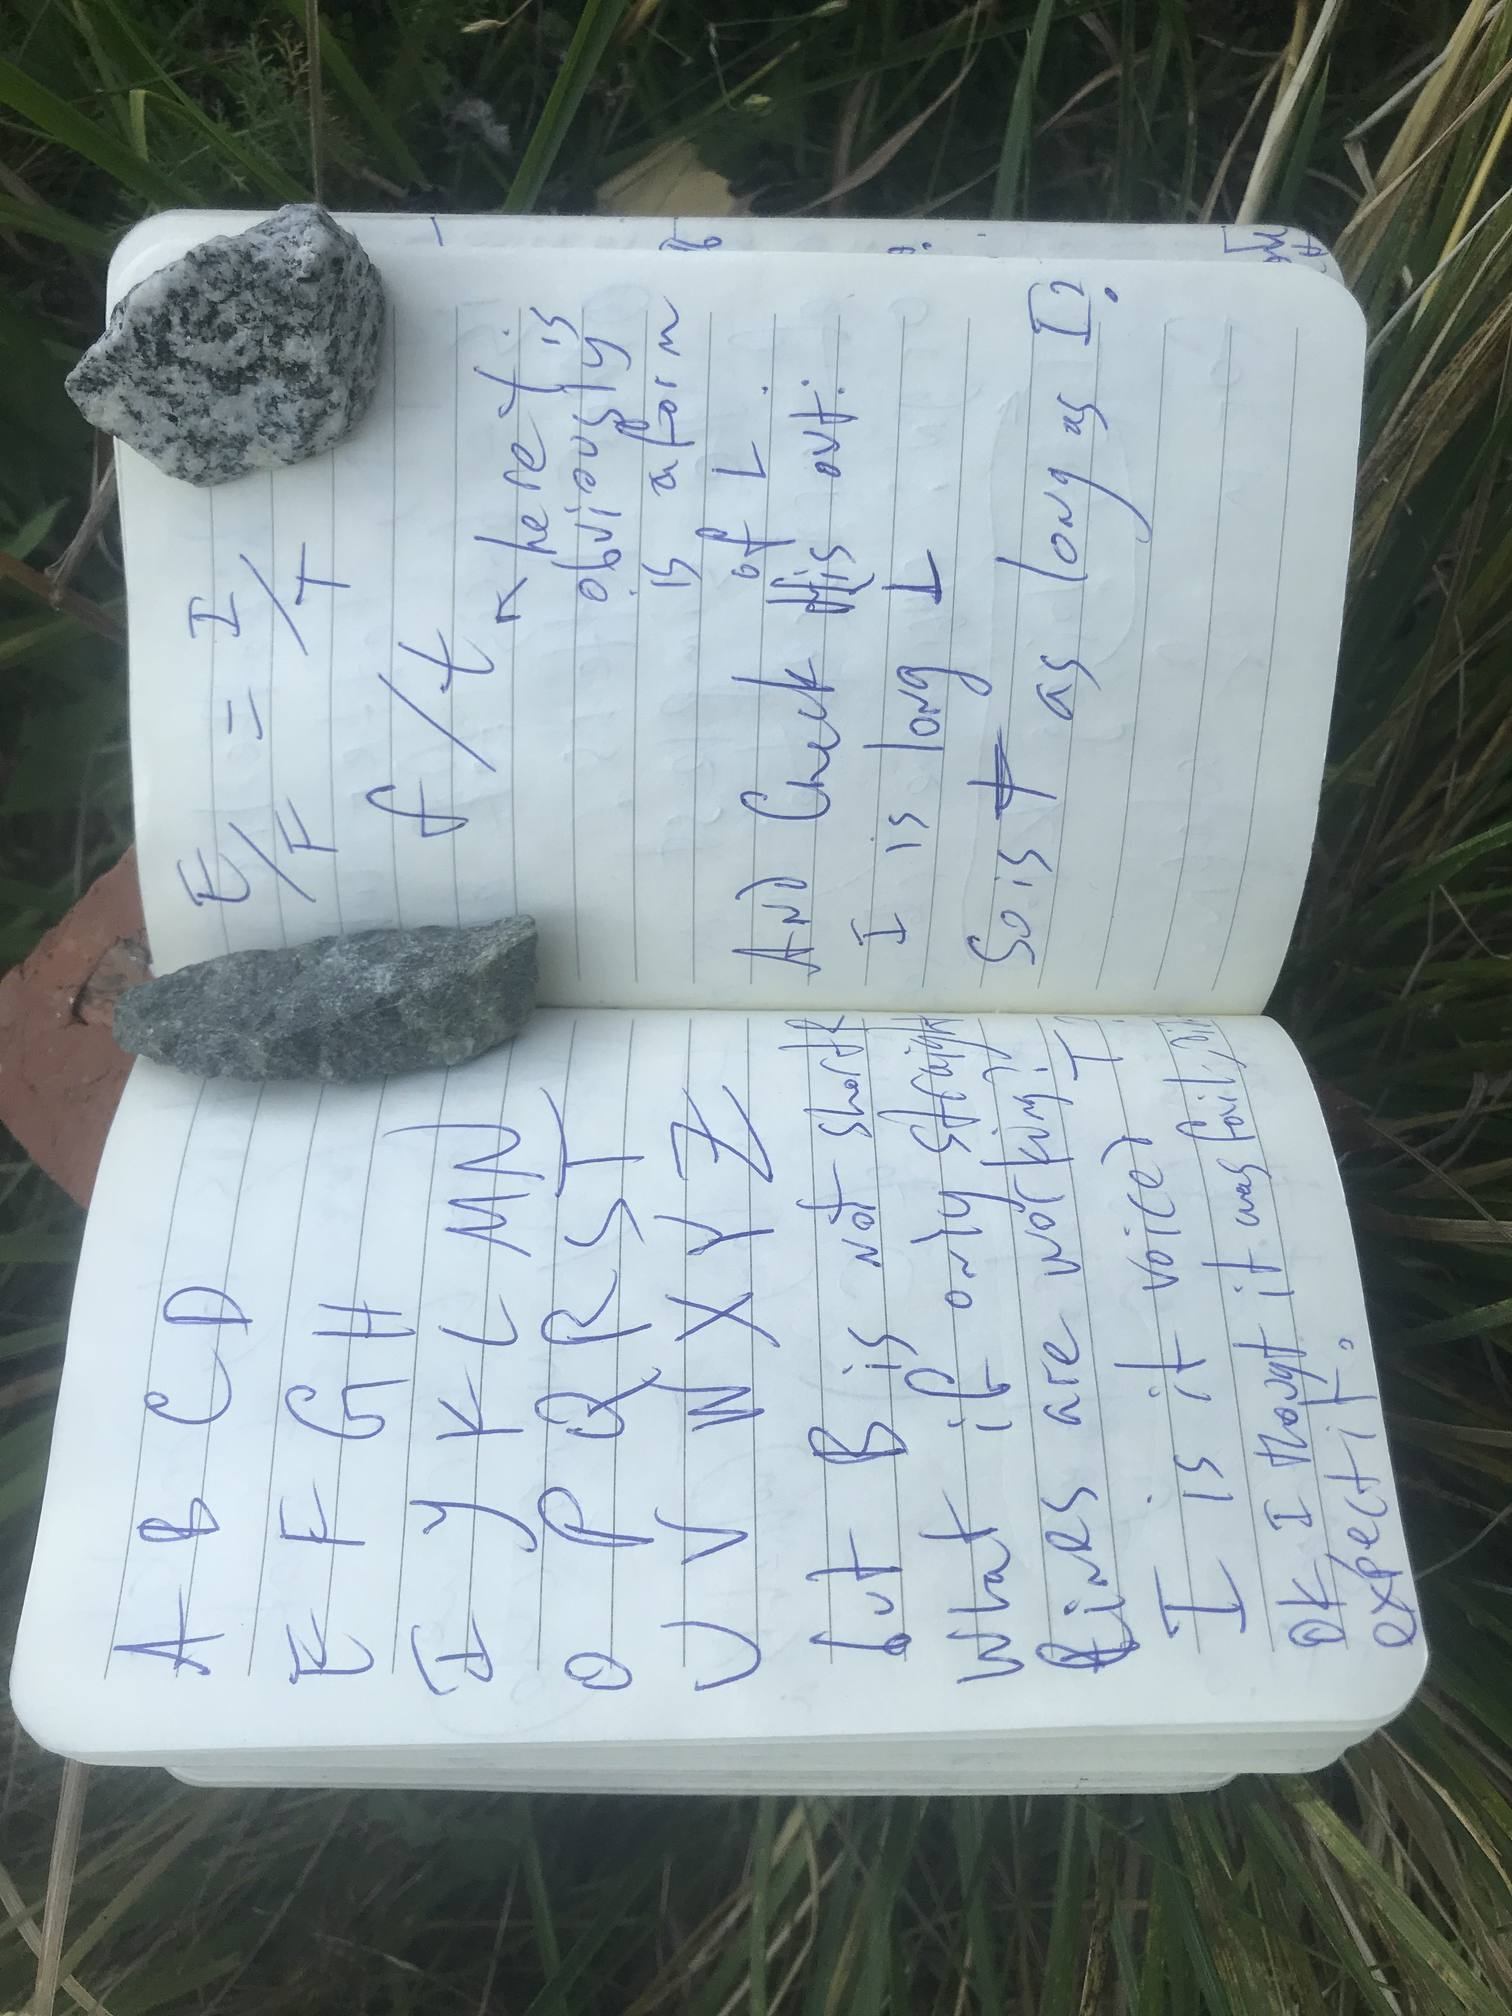 A B C D
E F G H
I Y K L M N
O P Q R S T
U V W X Y Z
but B is not short R
What if only straight
lines are working? T?
I is it voiced
OK I thought it was fail,
expectit.
E/F = I/T
f/t
here t is
obviously
is a form
of L.
And Check this out:
I is long L
So is t as long as I?